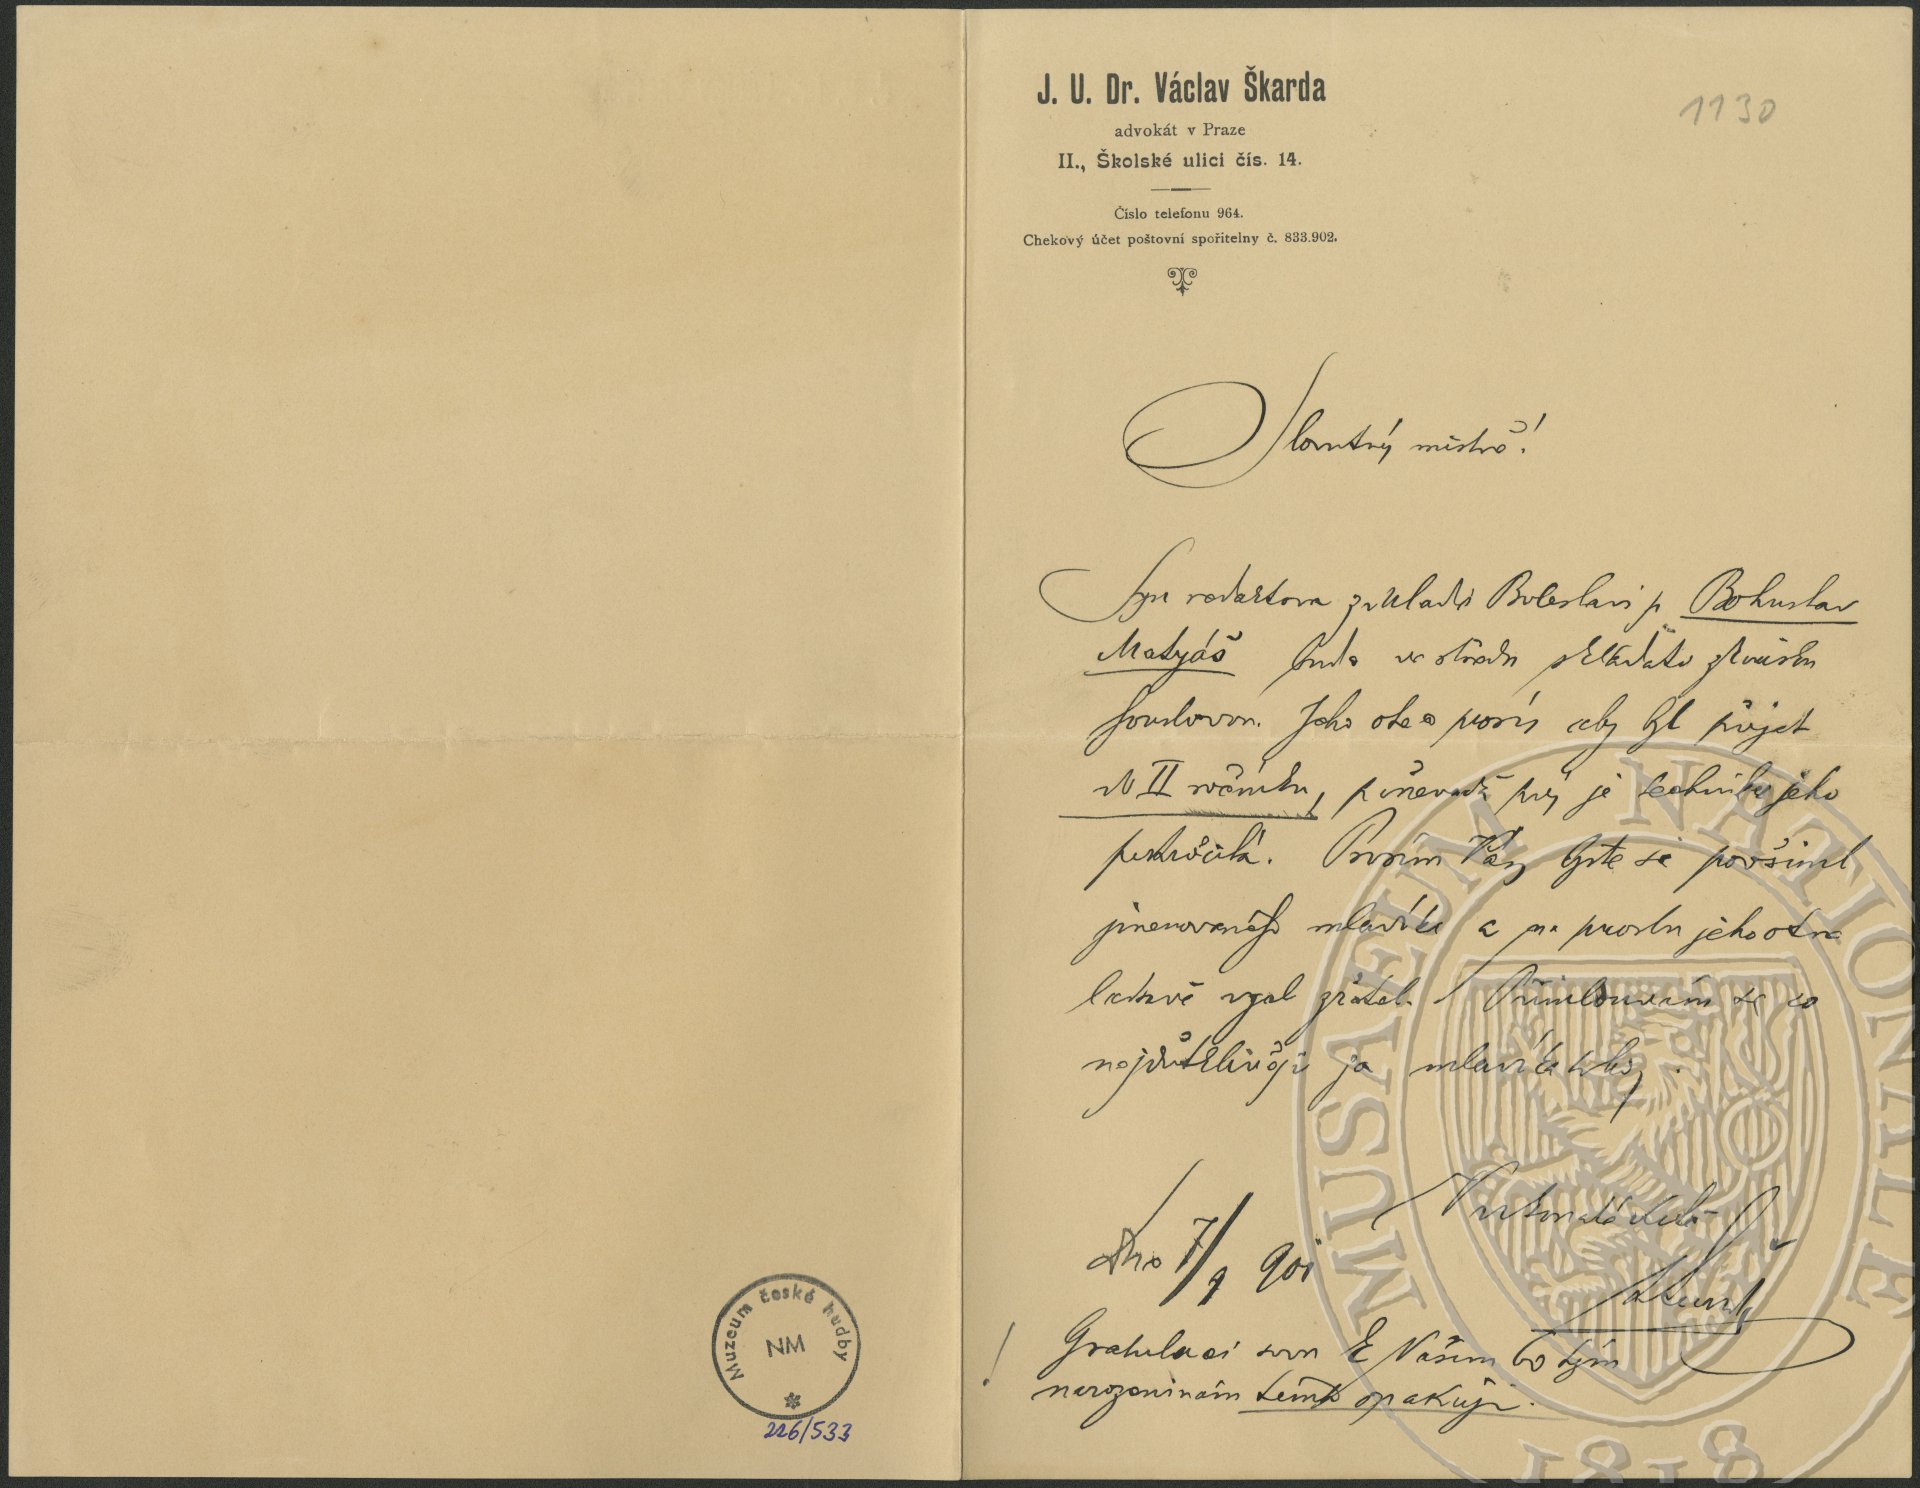 J. U. Dr. Václav Škarda
advokát v Praze
II., Školské ulici čís. 14.
Číslo telefonu 964.
Chekový účet poštovní spořitelny č. 833.902.
1130
Slovutný mistře!
Syn redaktora z Mladé Boleslavi p. Bohuslav
Matyáš bude ve středu skládati zkoušku
houslovou. Jeho otec prosí aby byl přijat
do II ročníku, poněvadž prý je technika jeho
pokročilá. Prosím Vás byste si povšiml
jmenovaného mladíka a na prosbu jeho otce
laskavě vzal zřetel. Přimlouvám se co
nejvřeleji za mladíka
Dne 7/9 901
V úctě
Škarda
! Gratulaci svou k Vašim 60 tým
narozeninám tímto opakuji.
Muzeum české hudby
NM
226/533
MUSAEUM NATIONALE
1818